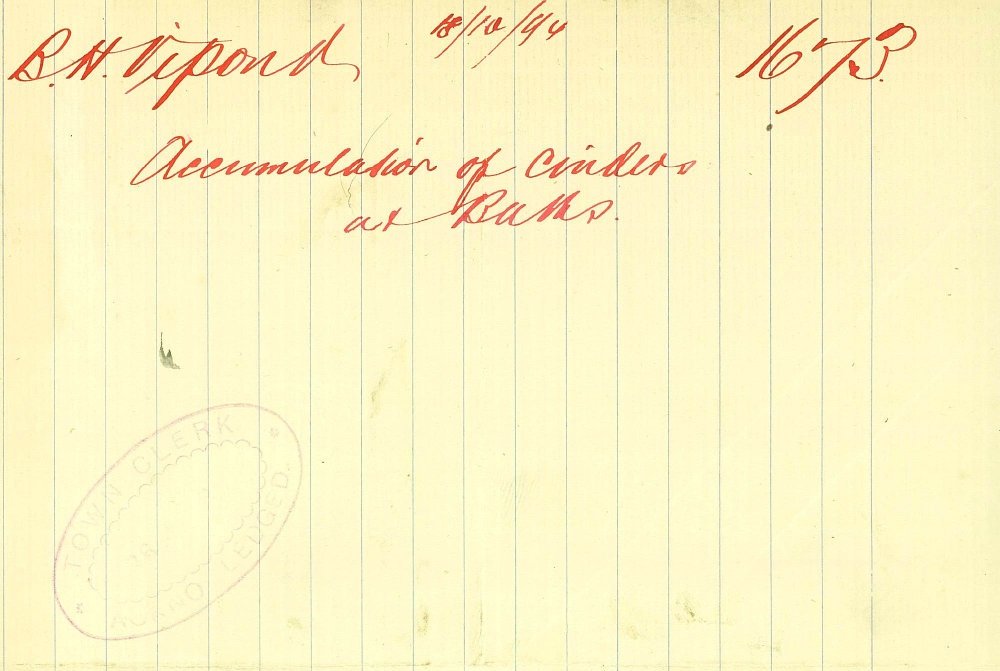 B.H. Vipond 18/10/94 1673
Accumulation of Cinders
at Baths.
TOWN CLERK
ACKNOWLEDGED.